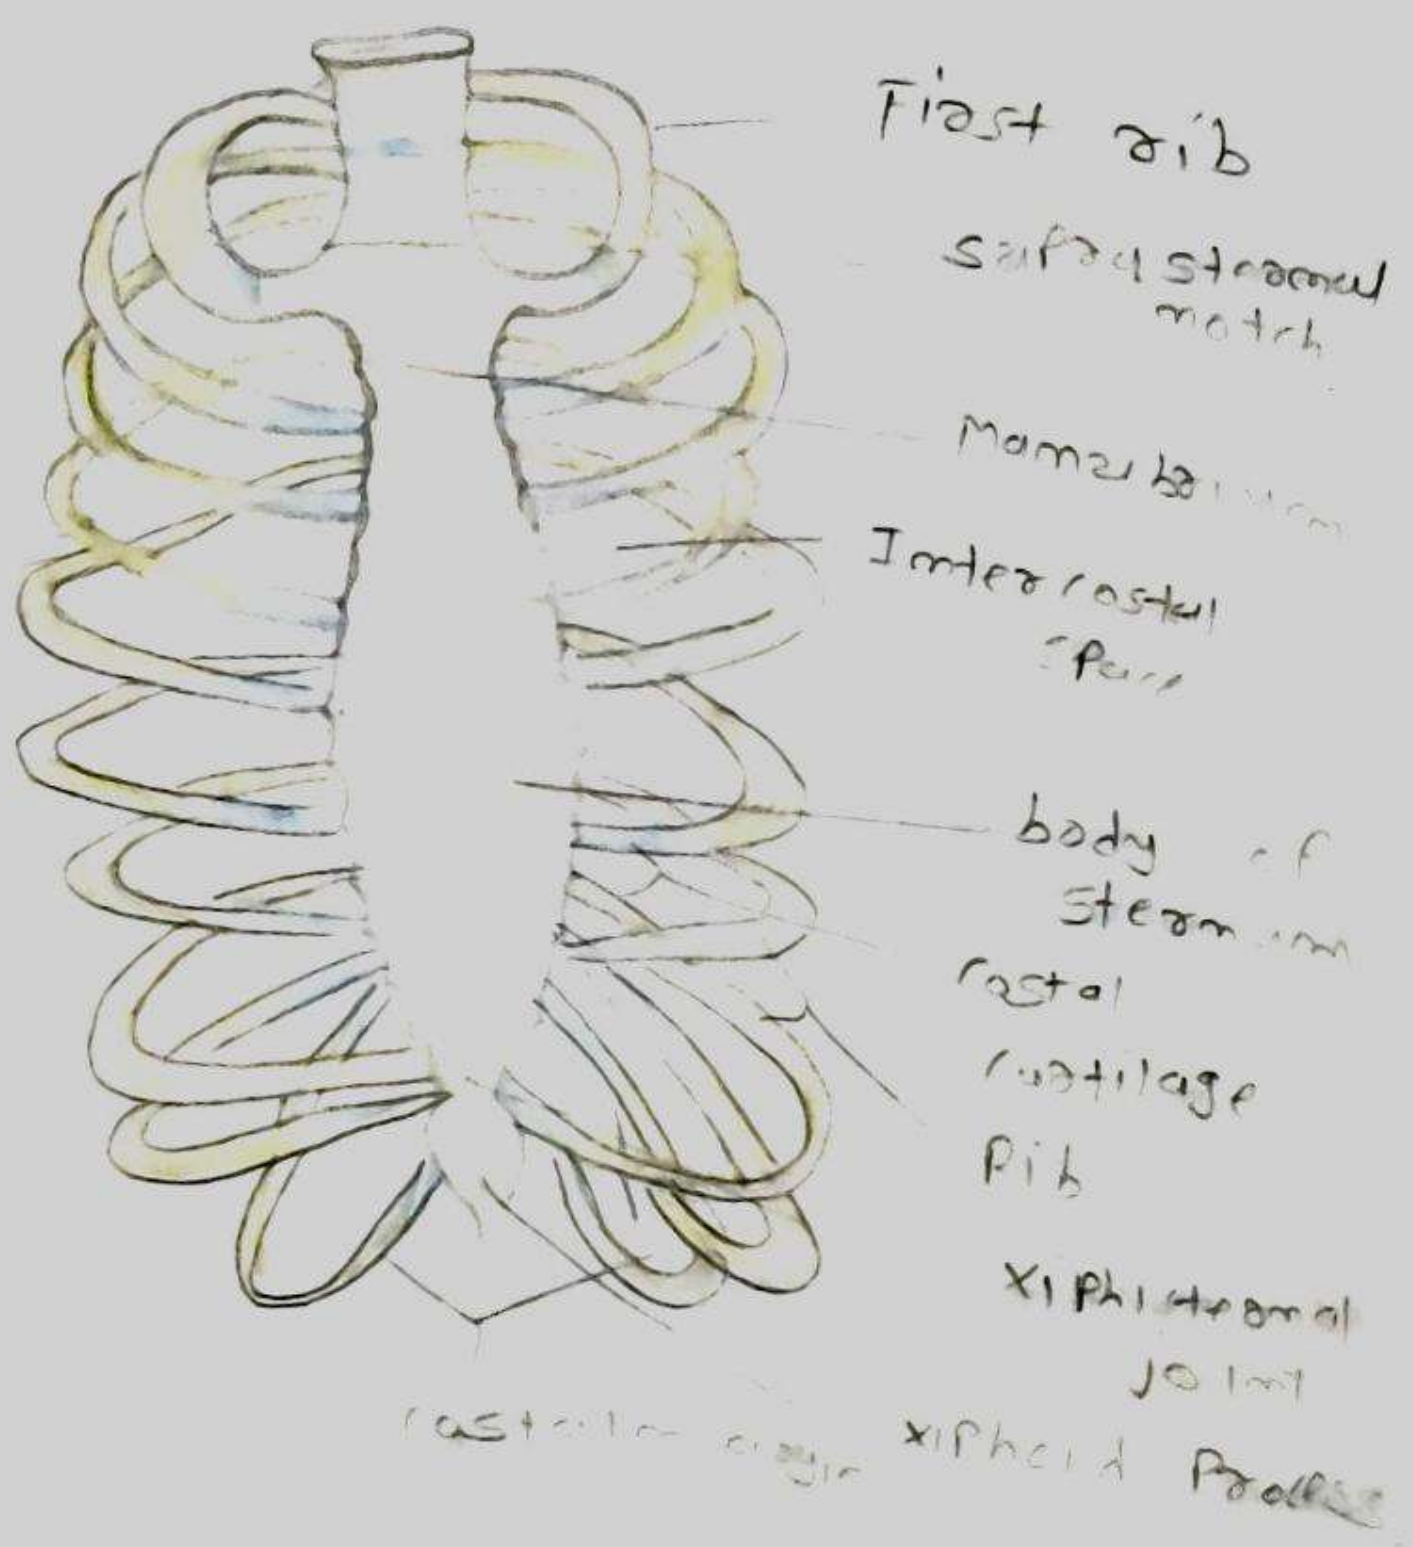 First rib
Supra sternal
notch
Manubrium
Intercostal
space
body of
sternum
costal
cartilage
Rib
Xiphisternal
joint
costal margin
xiphoid Process